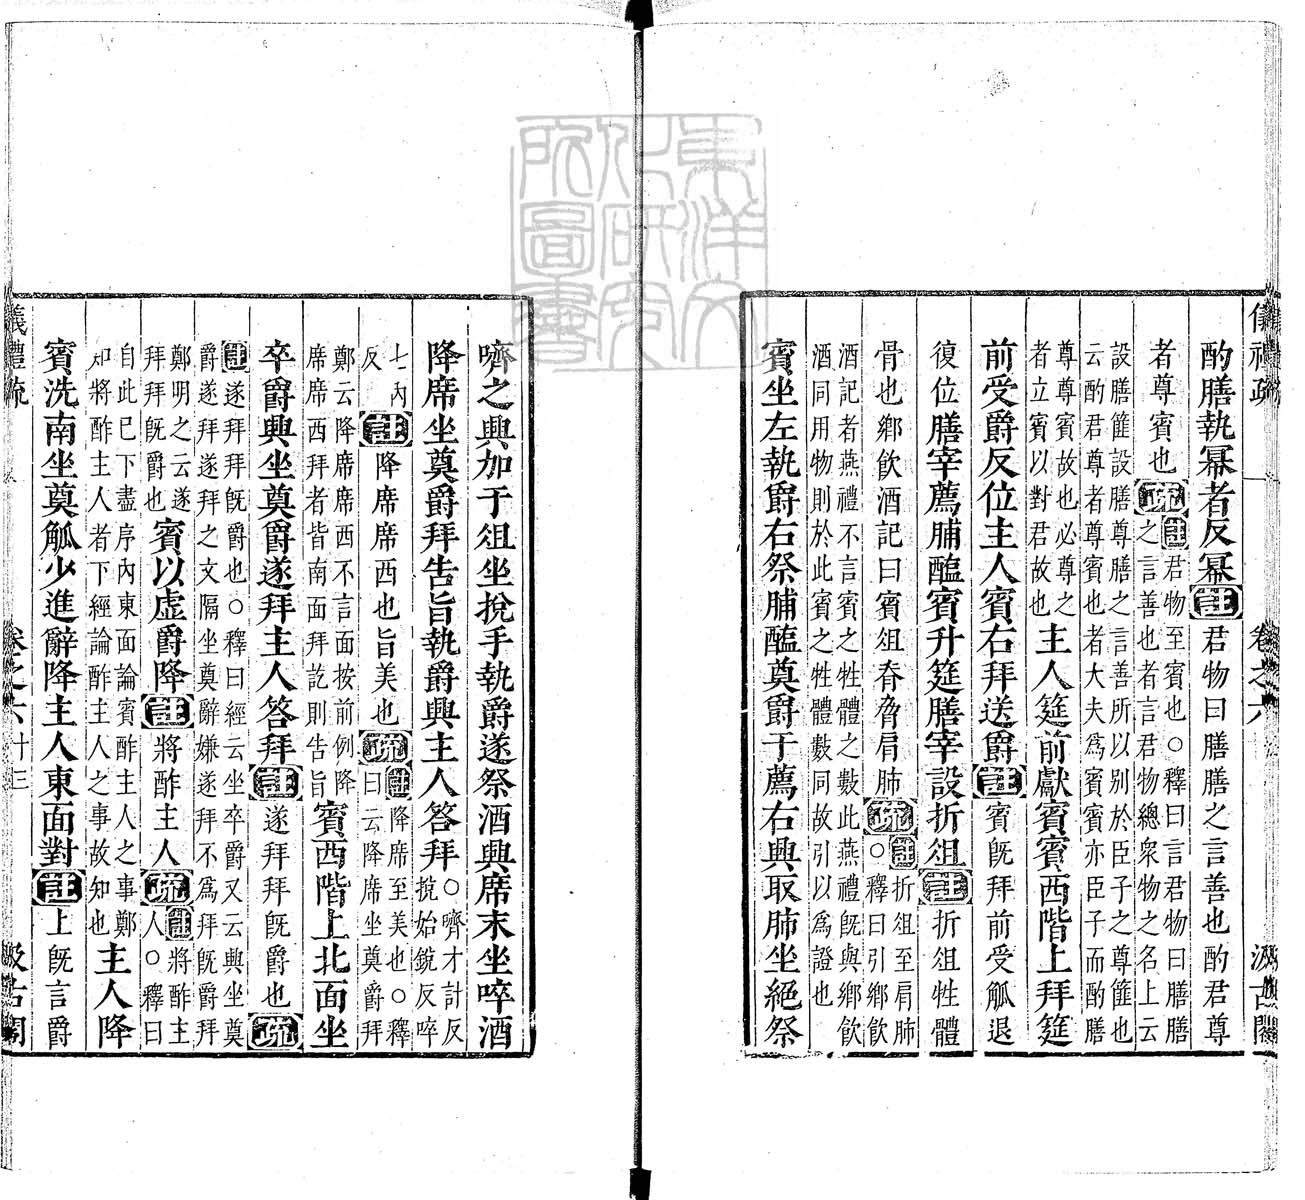 儀禮疏 卷之六 汲古閣
酌膳執冪者反冪註君物曰膳膳之言善也酌君尊
者尊賓也疏註君物至賓也○釋曰言君物曰膳
膳之言善也者言君物總衆物之名上云
設膳篚設膳尊膳之言善所以別於臣子之尊篚也
云酌君尊者尊賓也者大夫爲賓賓亦臣子而酌膳
尊尊賓故也必尊之
者立賓以對君故也主人筵前獻賓賓西階上拜筵
前受爵反位主人賓右拜送爵註賓既拜前受觚退
復位膳宰薦脯醢賓升筵膳宰設折俎註折俎牲體
骨也鄉飲酒記曰賓俎脊脅肩肺疏註折俎至肩肺
○釋曰引鄉飲
酒記者燕禮不言賓之牲體之數此燕禮既與鄉飲
酒同用物則於此賓之牲體數同故引以爲證也
賓坐左執爵右祭脯醢奠爵于薦右興取肺坐絕祭
嚌之興加于俎坐挩手執爵遂祭酒興席末坐啐酒
降席坐奠爵拜告旨執爵興主人答拜○嚌才計反
挩始銳反啐
七內
反註降席席西也旨美也疏註降席至美也○釋
曰云降席坐奠爵拜
鄭云降席席西不言面按前例降
席席西拜者皆南面拜訖則告旨賓西階上北面坐
卒爵興坐奠爵遂拜主人答拜註遂拜拜既爵也疏
註遂拜拜既爵也○釋曰經云坐卒爵又云興坐奠
爵遂拜遂拜之文隔坐奠辭嫌遂拜不爲拜既爵拜
鄭明之云遂
拜拜既爵也賓以虛爵降註將酢主人疏註將酢主
人○釋曰
自此已下盡序內東面論賓酢主人之事鄭
知將酢主人者下經論酢主人之事故知也主人降
賓洗南坐奠觚少進辭降主人東面對註上既言爵
儀禮疏 卷之六 十三 汲古閣
東洋文化研究所圖書